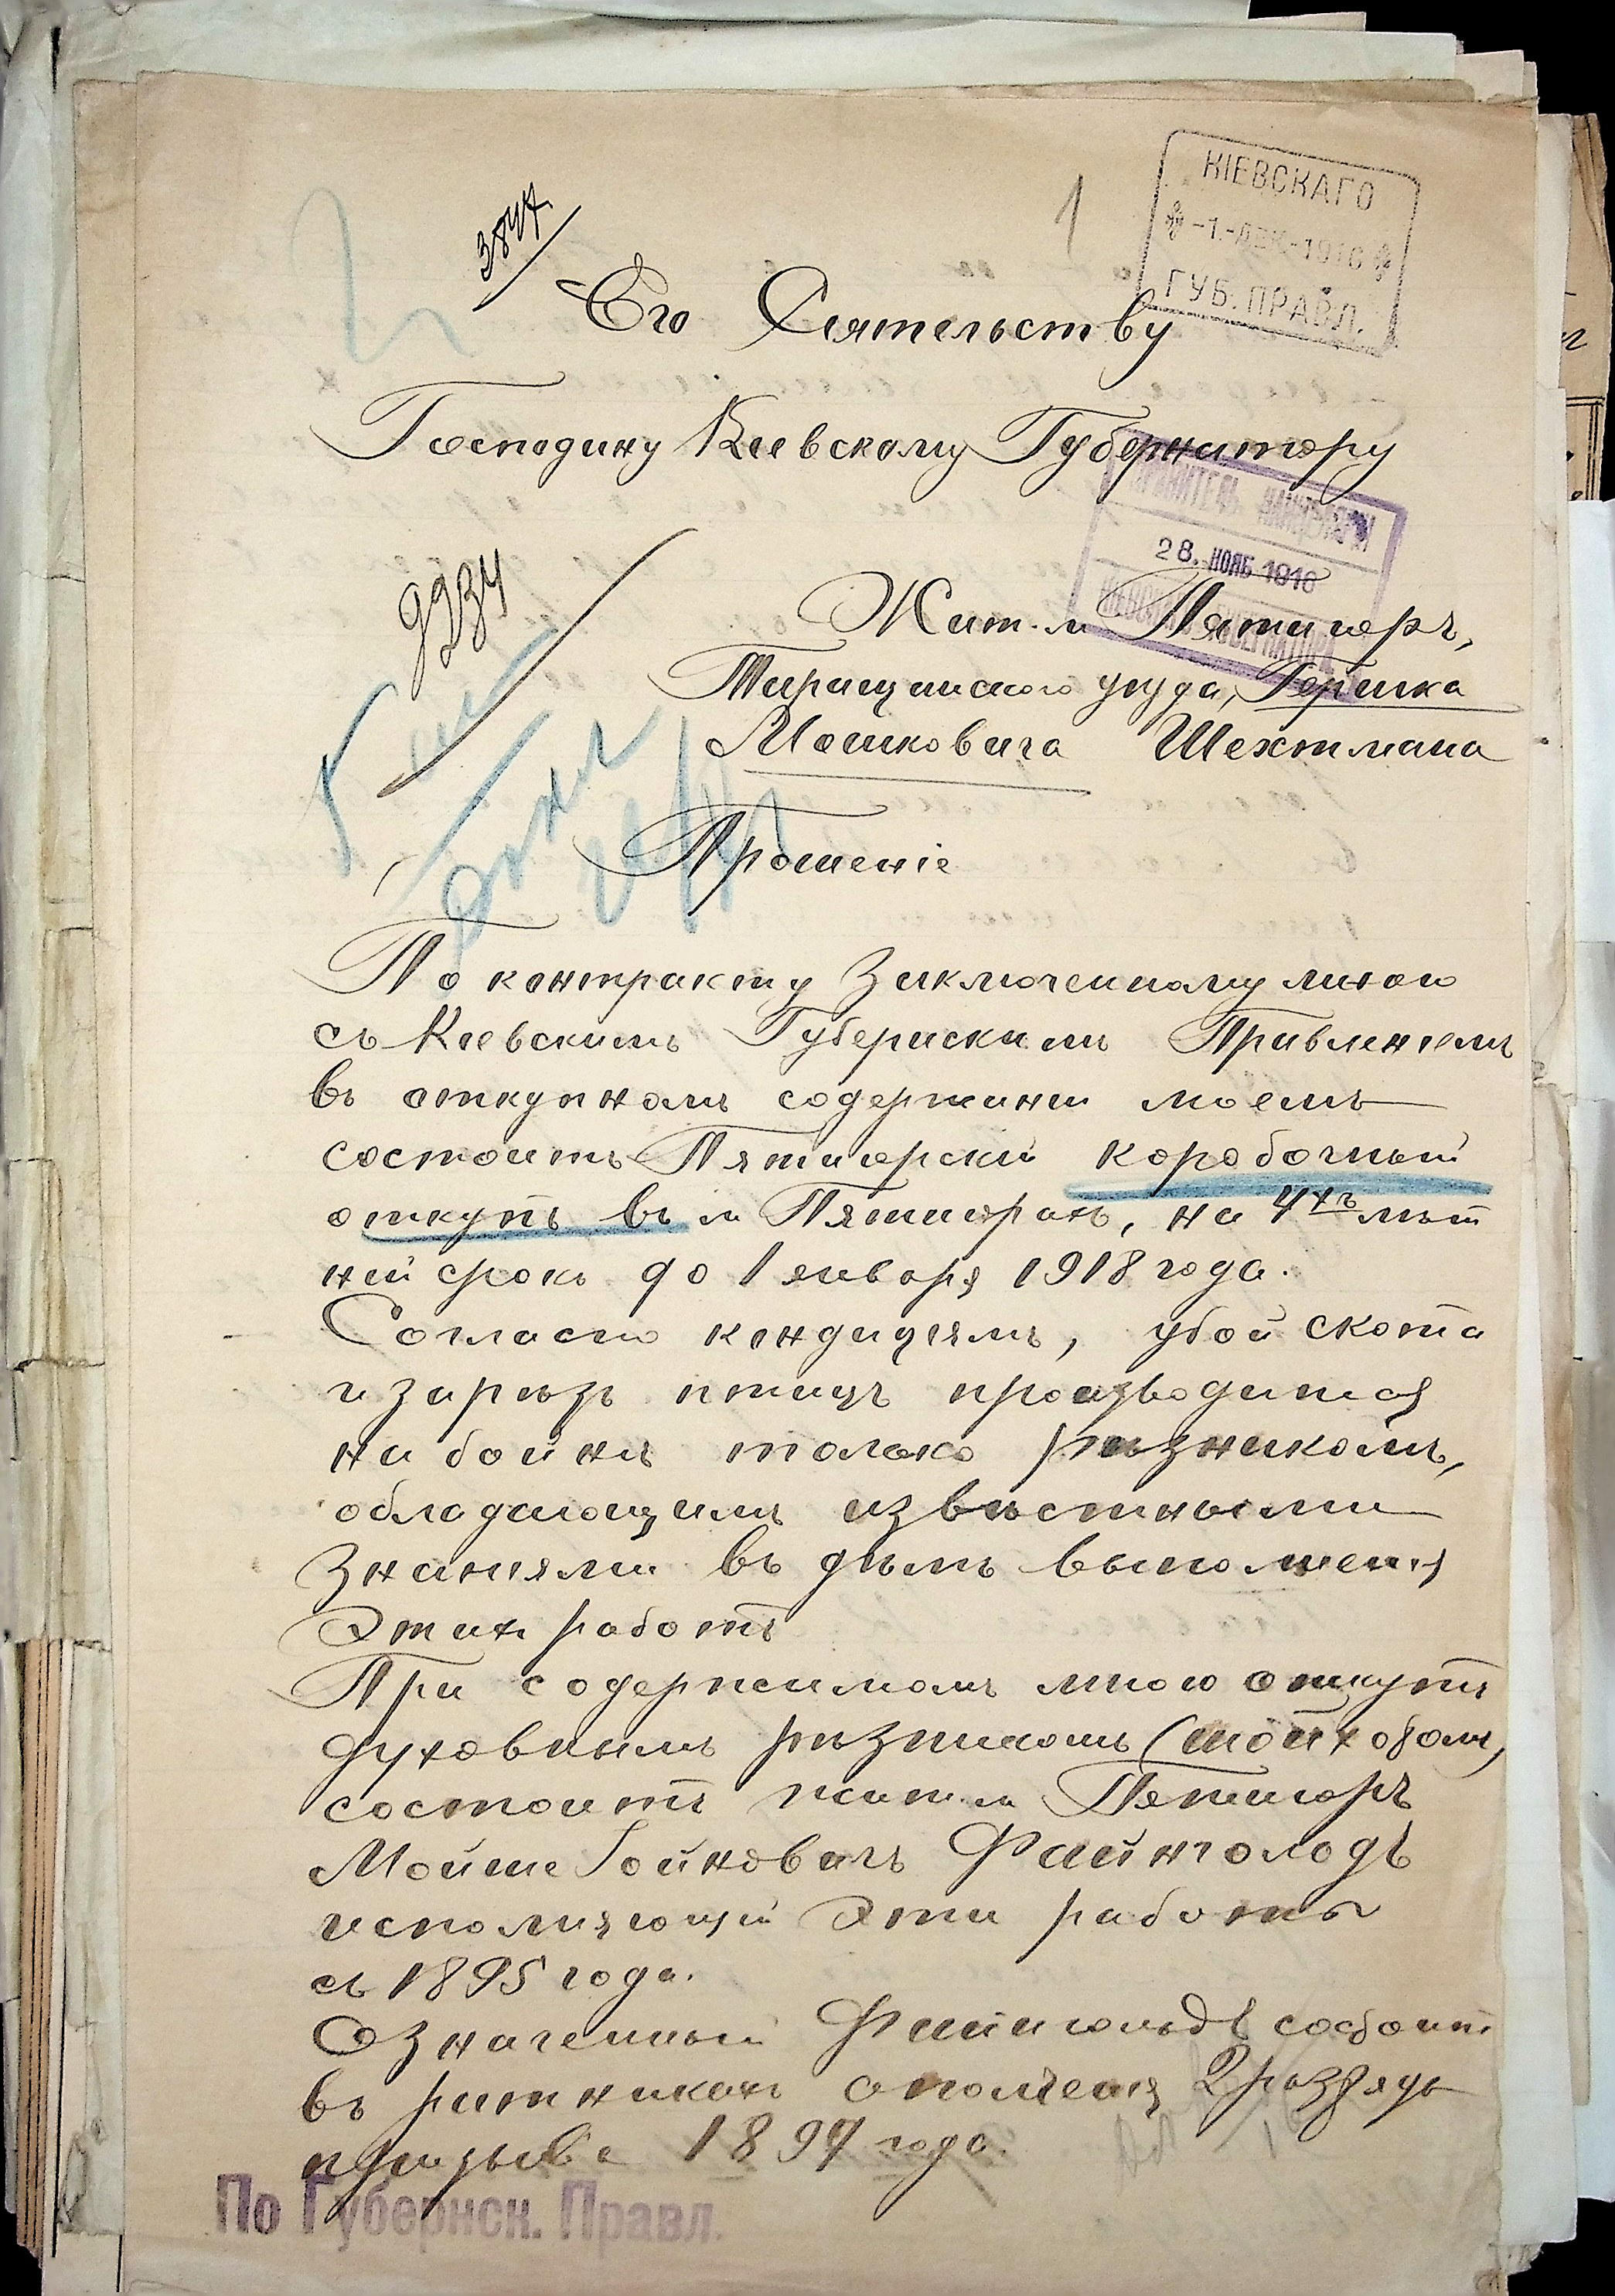 КІЕВСКАГО
-1.-ДЕК.-1916
ГУБ. ПРАВЛ.
1
3847
Его Сіятельству
Господину Кіевскому Губернатору
ПРАВИТЕЛЬ КАНЦЕЛЯРІИ
28. НОЯБ 1916
КІЕВСКАГО ГУБЕРНАТОРА
9234
Жит. м Пятигоръ,
Таращанскаго уѣзда, Гершка
Мошковича Шехтмана
Прошеніе
По контракту заключенному мною
съ Кіевскимъ Губернскимъ Правленіемъ
въ откупномъ содержаніи моемъ
состоитъ Пятигорскій коробочный
откупъ въ м Пятигорахъ, на 4хъ лѣт
ній срокъ до 1 января 1918 года.
Согласно кондиціямъ, убой скота
и зарѣзъ птицъ производится
на бойнѣ только рѣзникомъ,
обладающимъ извѣстными
знаніями въ дѣлѣ выполненія
этихъ работъ
При содержимомъ мною откупѣ
духовнымъ рѣзникомъ (шойхобомъ,
состоитъ жит м Пятигоръ
Мойше Іойновичъ Файнголодъ
исполняющій эти работы
съ 1895 года.
Означенный Файнгольдъ состоитъ
въ ратникахъ ополченія 2 разряда
призыва 1897 года.
По Губернск. Правл.